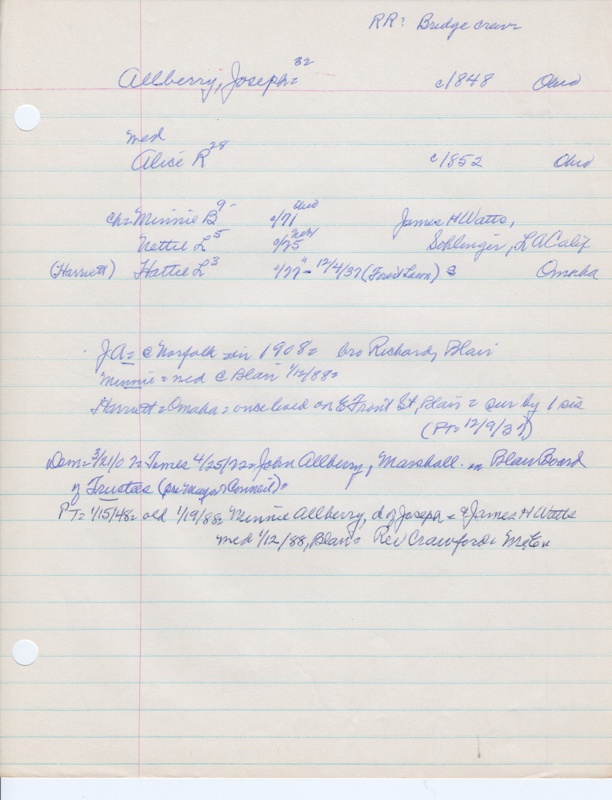 RR: Bridge crew
Allberry, Joseph = 32 c/1848 Ohio
med
Alice R 28 c/1852 Ohio
ch = Minnie B 9 - c/71 Ohio James H Watts,
Nettie L 5 c/75 Neb L A Calif
(Harriett) Hattie L 3 c/77 " - 12/4/37 (Forest Lawn) s Omaha
JA = c Norfolk = in 1908 = bro Richard, Blair
Minnie = med c Blair 1/12/88 =
Harriett = Omaha = once lived on E Front St, Blair = sur by 1 sis
(PT = 12/9/37)
Dem = 3/21/07 = Times 4/25/72 = John Allberry, Marshall. in Blair Board
of Trustees (pre Mayor & Council) =
PT = 1/15/48 = old 1/19/88 = Minnie Allberry, d of Joseph = & James H Watts
med 1/12/88, Blair = Rev Crawford = Me Ex